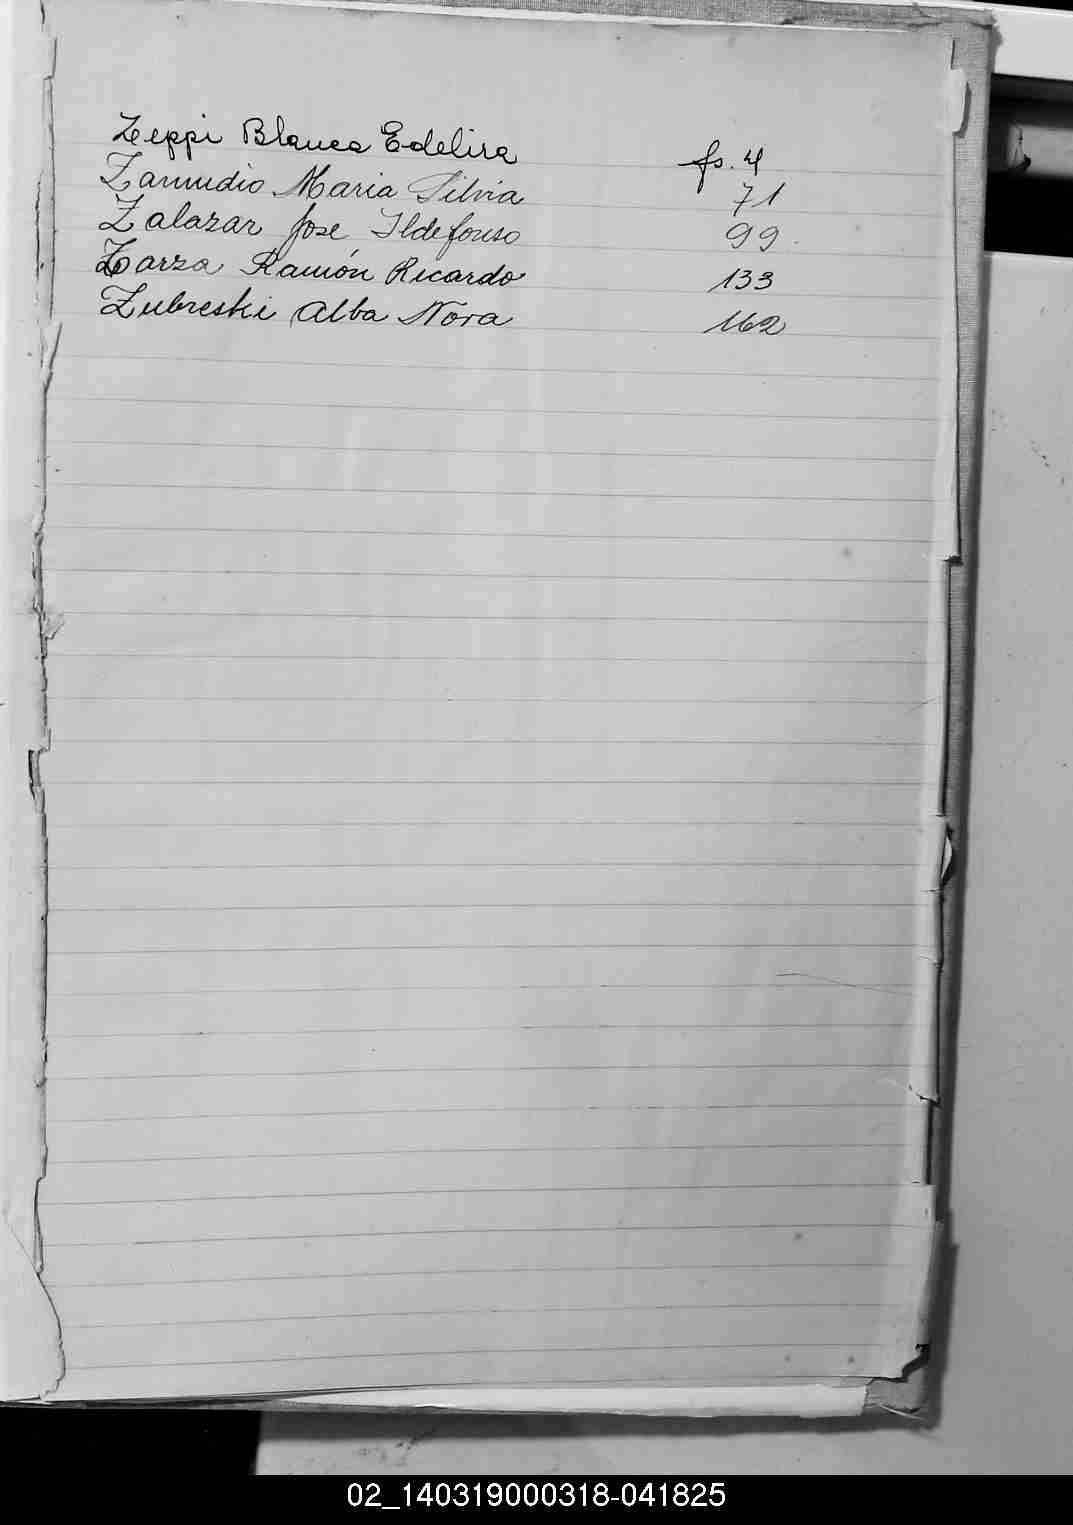 Zeppi Blanca Edelira fs. 4
Zamudio Maria Silvia 71
Zalazar Jose Ildefonso 99
Zarza Ramón Ricardo 133
Zubreski Alba Nora 162
02_140319000318-041825